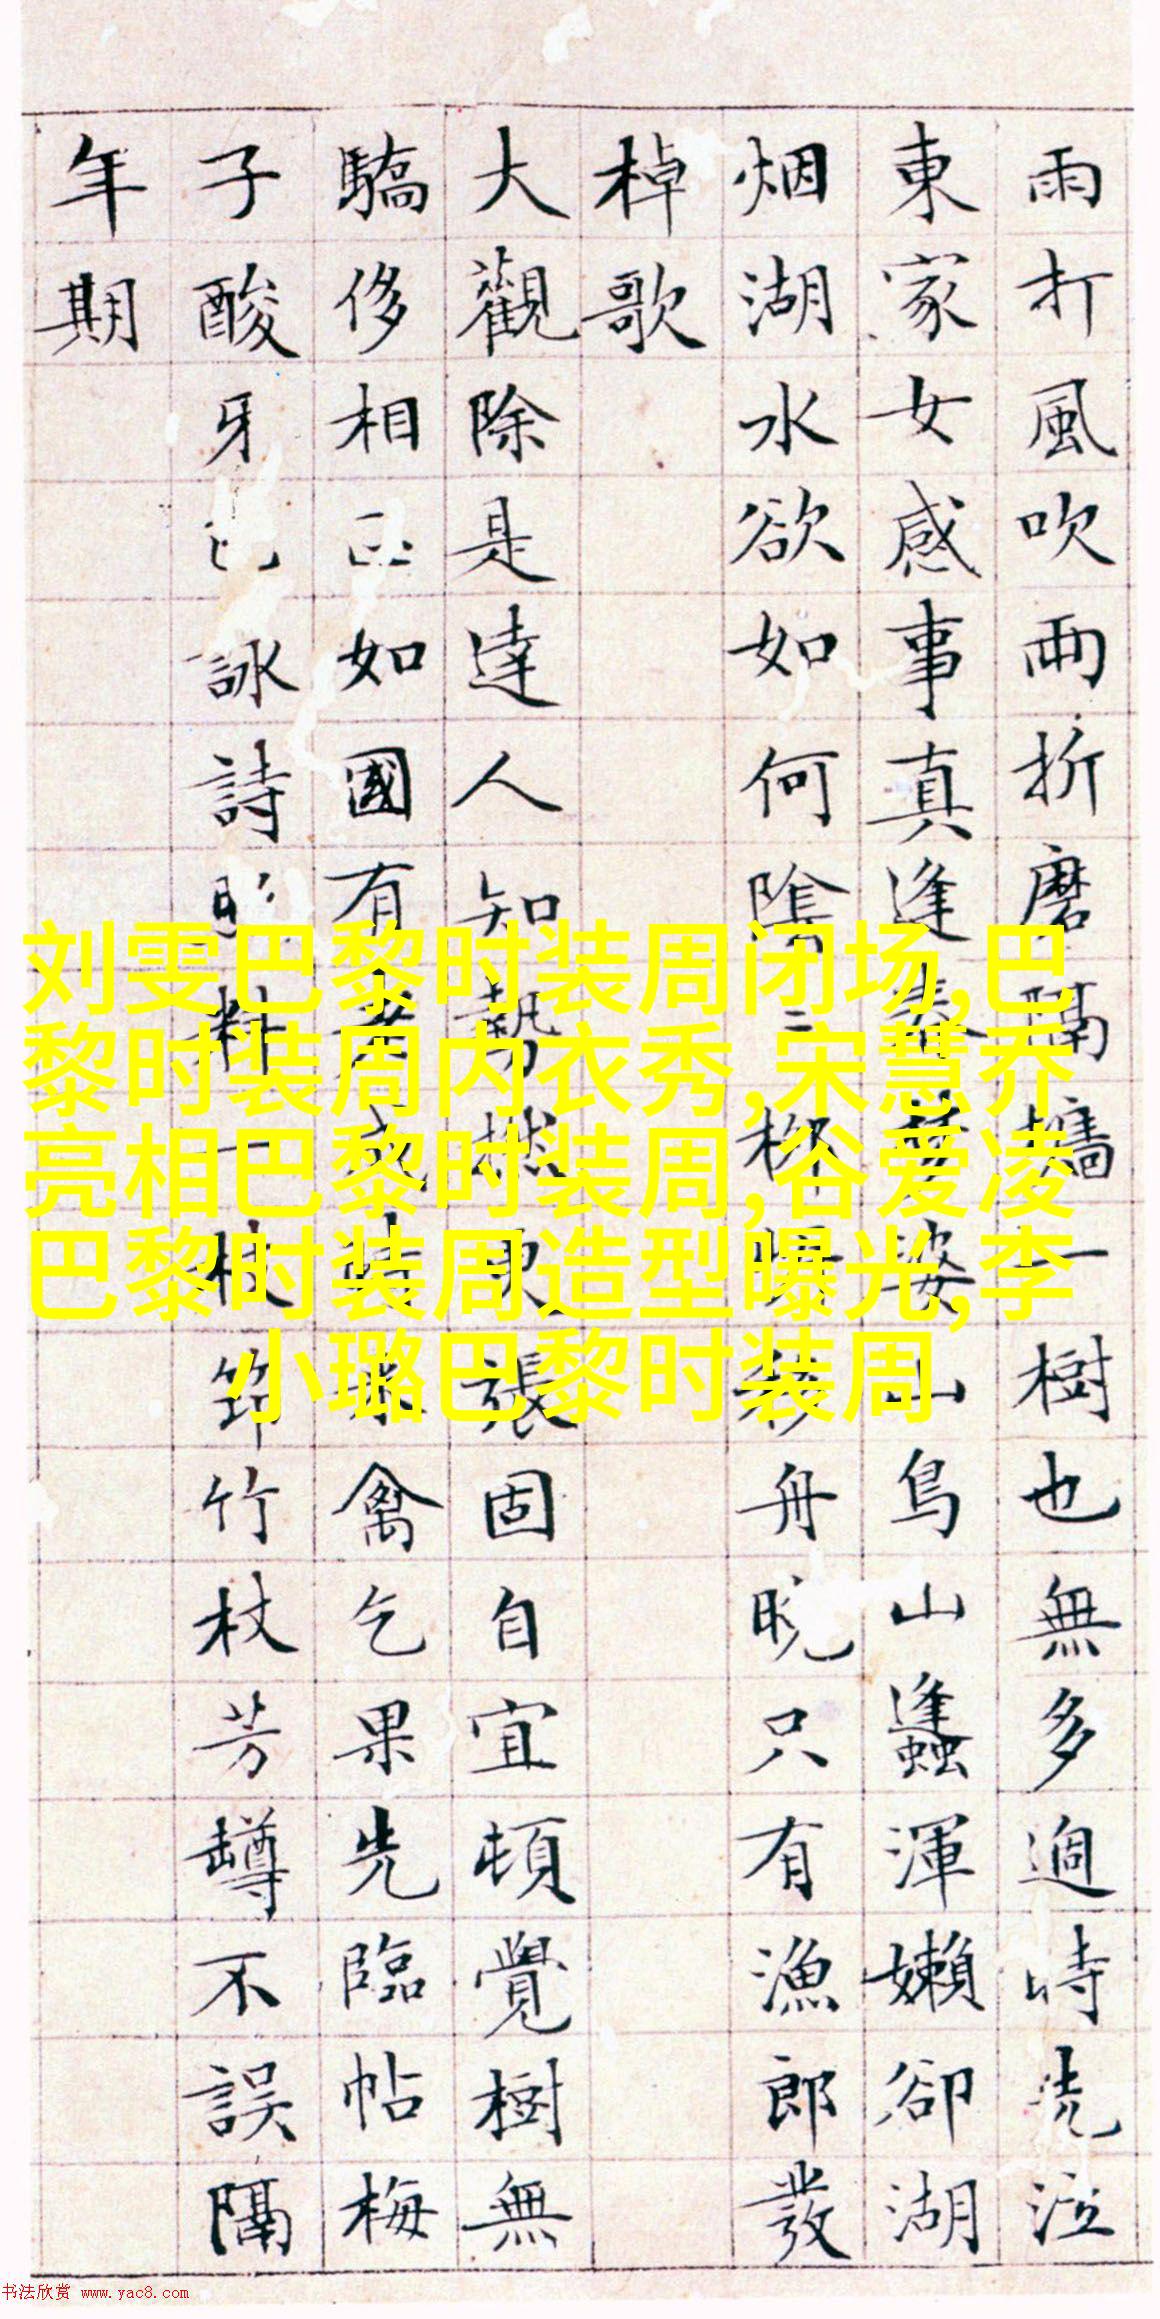 雨打風吹兩折磨隔牆一樹也無多過時洗泣
東家女感事真逢麥婆山鳥山蠭渾嬾卻湖
烟湖水欲如何陰二柳映移舟晚只有漁郎發
棹歌
大觀除是達人知勢燃東張固自宜頓覺樹無
驕侈相如國有成來禽乞果先臨帖梅
子酸牙詠詩料一枝筇竹杖芳罇不誤隔
年期
刘雯巴黎时装周闭场,巴
黎时装周内衣秀,宋慧乔
亮相巴黎时装周,谷爱凌
巴黎时装周造型曝光,李
小璐巴黎时装周
书法欣赏 www.yac8.com